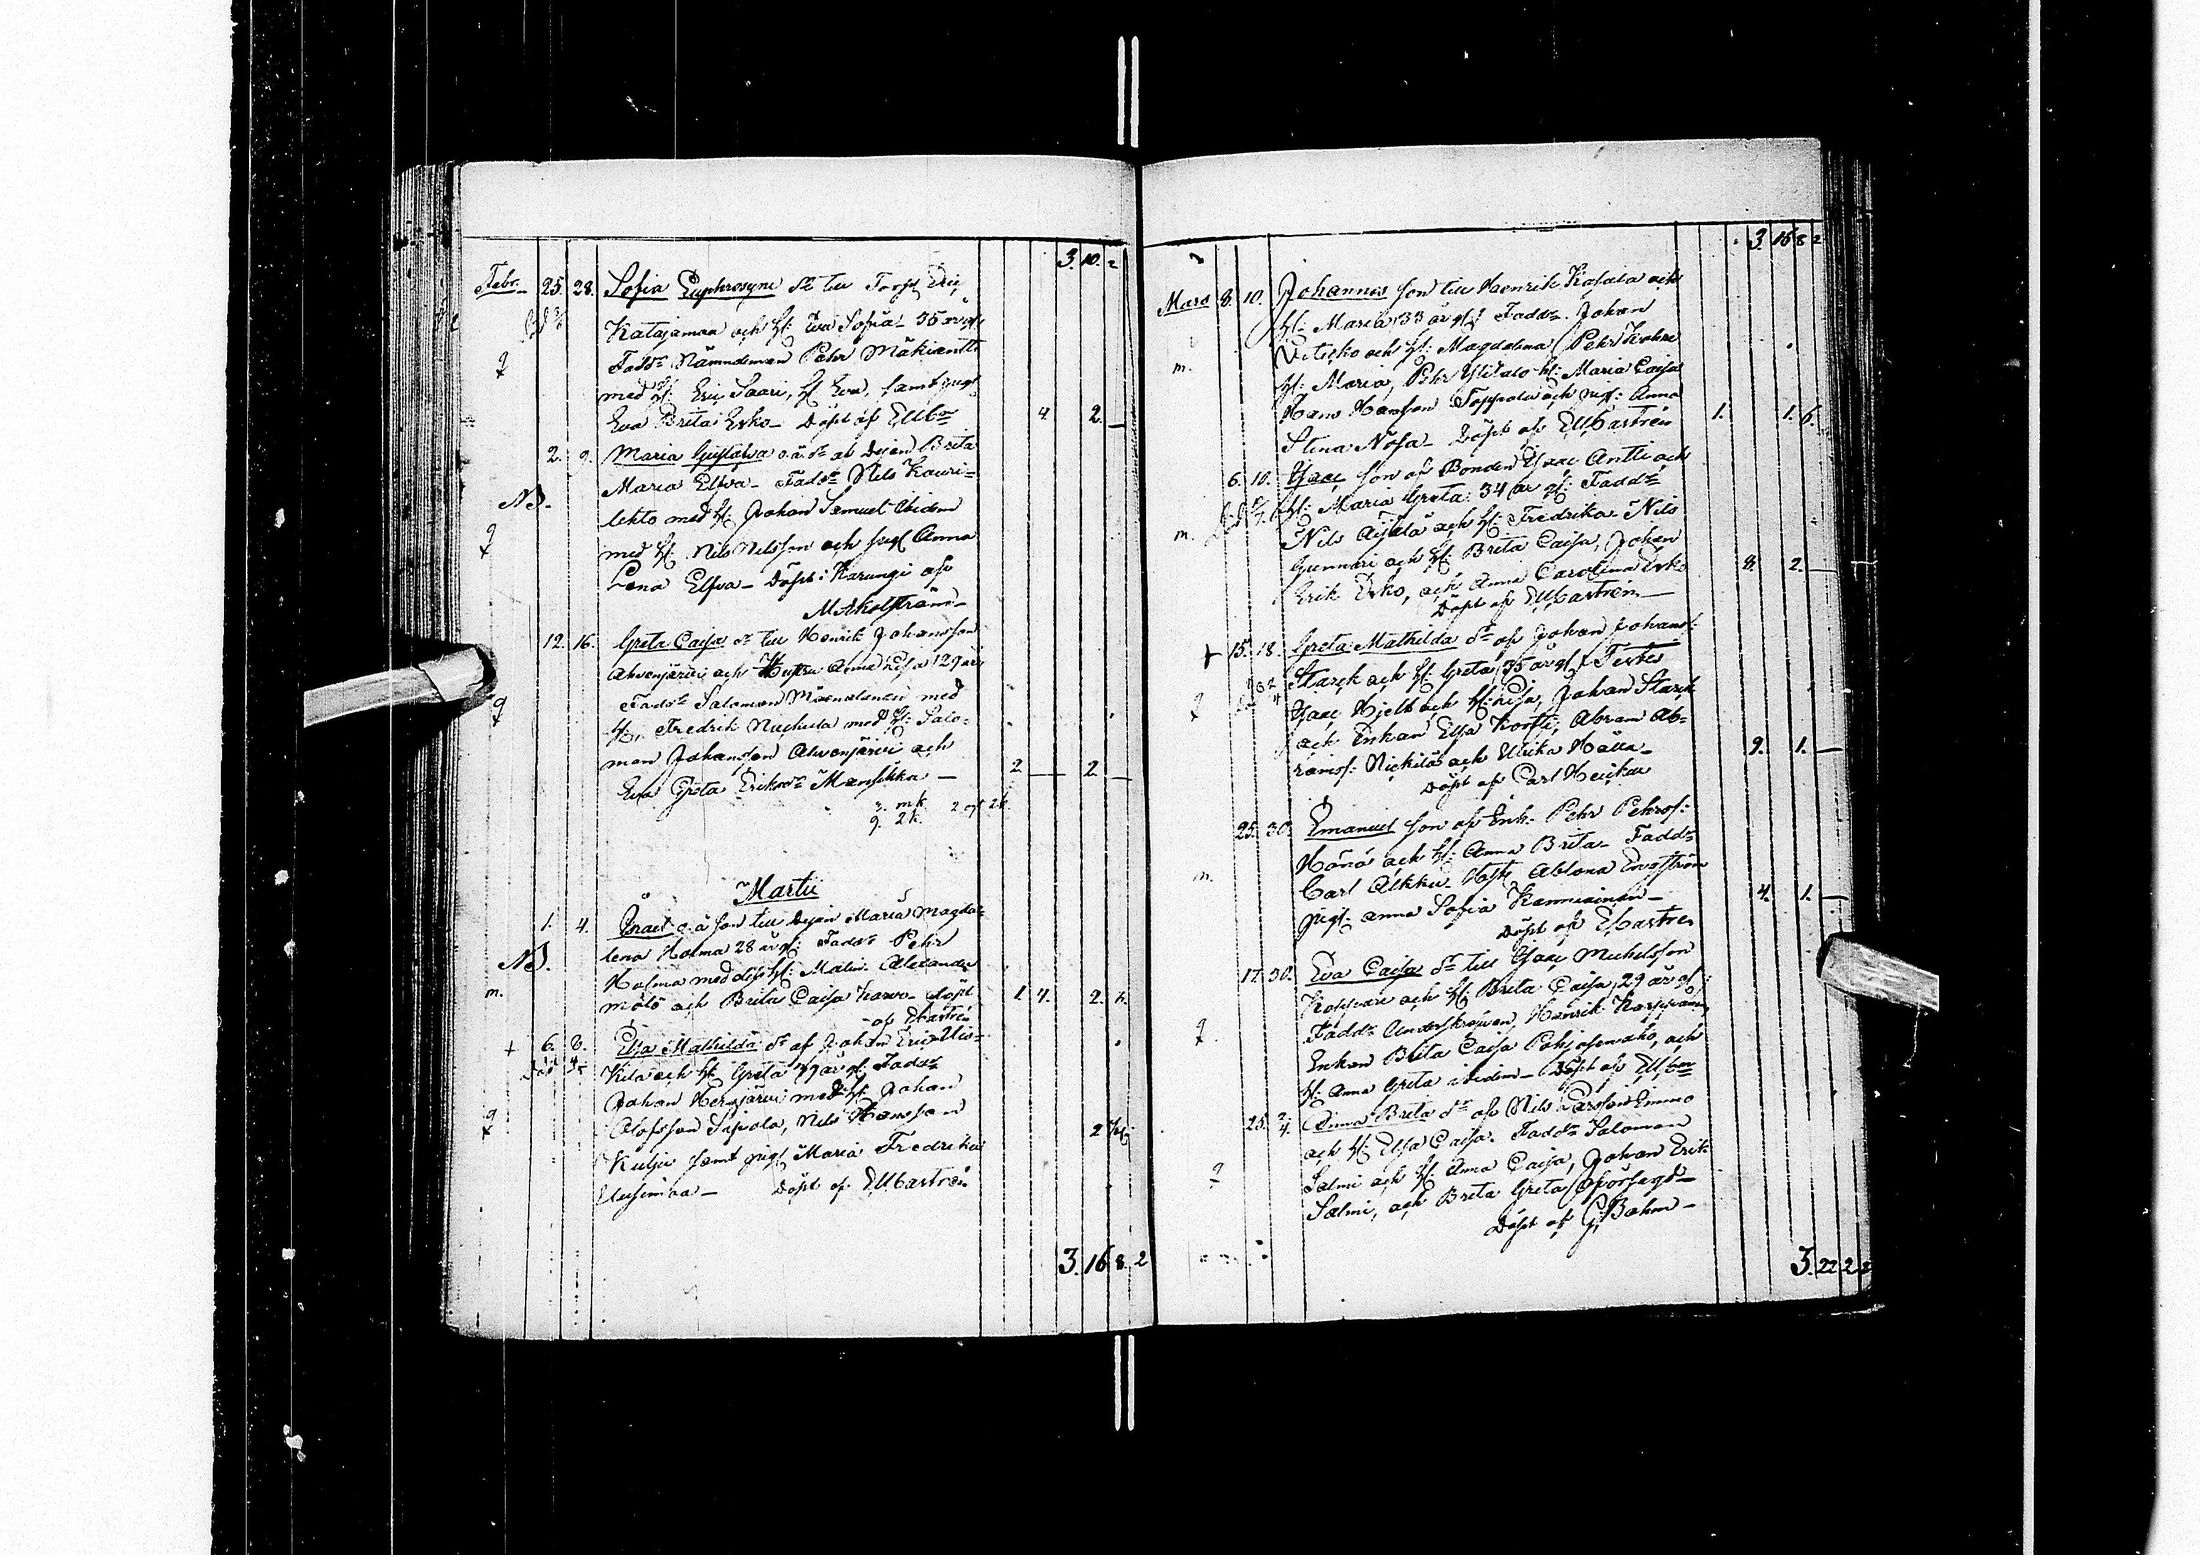 3. 10. 2
Febr. 25. 28. Sofia Euphrosyne dr till Torp. Eric
Katajamaa och h: Eva Sofia 35 år g:
Faddr Nämndeman Pehr Mäkiantti
med h: Eric Saari, h: Eva, samt pig:
Eva Brita Erko - Döpt af EMCn 4 2.
2. 9. Maria Gustafva o.ä. dr af Pigan Brita
Maria Elfva - Faddr Nils Kauri-
NB. lehto med h: Johan Samuel ibidem
med h: Nils Nilsson och pig: Anna
Lena Elfva - Döpt i Karungi af
M Akolström
12. 16. Greta Caisa dr till Henrik Johansson
Ahvenjärvi och Hustru Anna Lisa 29 år
Faddr Salomon Mäenalanen med
h:, Fredrik Nuckula med h: Salo-
mon Johansson Ahvenjärvi och
Eva Greta Eriksdr Manfikka — 2 2
3. mk
9. 2k.
Martii
1. 4. Israel o.ä son till Pigan Maria Magda-
lena Holma 28 år g: Faddr Pehr
NB. Holma med dess h: Malin. Alexander
m. mölö och Brita Caisa Karvo - Döpt 1. 4. 2.
af Castrén
+ 6. 8. Elsa Mathilda dr af Johan Ericss. Uis-
Kila och h: Greta 39 år g: Faddr
Johan Herajärvi med h: Johan
Olofsson Sipola, Nils Hansson
Kulju samt pig: Maria Fredrika
Uusimaa - Döpt af EMCastrén
3. 16 8 2
3. 16 8 2
Mars 8. 10. Johannes son till Henrik Kassala och
h: Maria 33 år g: Faddr Johan
m. Vitsiko och h: Magdalena, Pehr Kohre
h: Maria, Pehr Ylitalo h: Maria Caisa
Hans Hansson Toppola och pig: Anna 1. 1. 6.
Stina Nosa - Döpt af EMCastrén
6. 10. Isac son af Bonden Isac Antti och
h: Maria Greta 34 år g: Faddr
m. Nils Aijälä och h: Fredrika Nils
Gunnari och h: Brita Caisa, Johan
Erik Erko, och Anna Carolina Erko 8. 2.
Döpt af EMCastrén
+ 15. 18. Greta Mathilda dr af Johan Johans:
Starck och h: Greta 35 år g: Testes
Isac Hjelt och h: Lisa, Johan Starck
och Enkan Elsa Kortti, Abram Ab-
ramss: Nickilä och Ulrika Hälla - 9. 1.
Döpt af Carl Heickel
25. 30. Emanuel son af Enk. Pehr Pehrss:
Hönö och h: Anna Brita - Faddr
m. Carl Alkku. Hust. Ablona Engström
pig: Anna Sofia Kanniainen - 4. 1.
Döpt af ECastrén
17. 30. Eva Caisa dr till Isac Michelsson
Koppari och h: Brita Caisa, 29 år g:
Faddr Anders Krouven, Henrik Karppanen
Enkan Brita Caisa Pohjosenaho, och
h: Anna Greta ibidem - Döpt af EMCn
25. 2/4. Anna Brita dr af Nils Larsson Emmo
och h: Elsa Caisa. Faddr Salomon
Salmi och h: Anna Caisa, Johan Erik
Salmi, och Brita Greta Oförsagd -
Döpt af G. Bohm -
3. 22 2 2